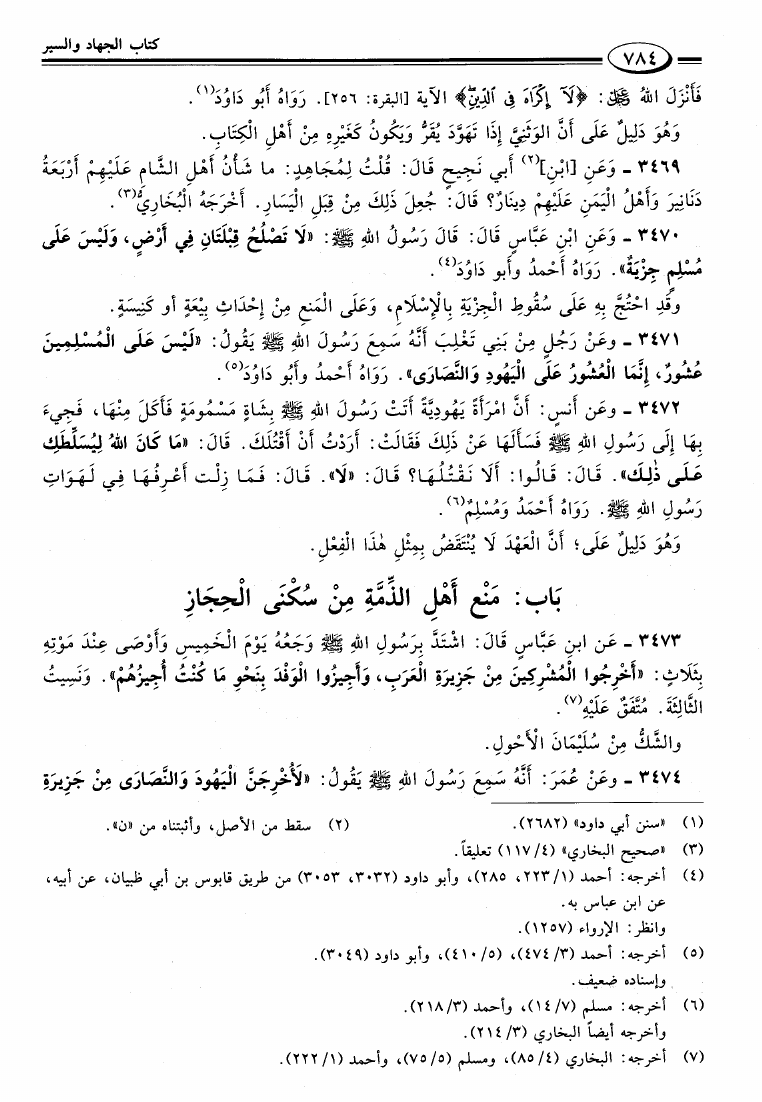 كتاب الجهاد والسير
٧٨٤
فَأَنْزَلَ اللهُ ﷿: ﴿لَآ إِكْرَاهَ فِي ٱلدِّينِ﴾ الآية [البقرة: ٢٥٦]. رَوَاهُ أَبُو دَاوُدَ(١).
وَهُوَ دَلِيلٌ عَلَى أَنَّ الوَثَنِيَّ إِذَا تَهَوَّدَ يُقَرُّ وَيَكُونُ كَغَيْرِهِ مِنْ أَهْلِ الكِتَابِ.
٣٤٦٩ ـ وَعَنِ [ابْنِ](٢) أَبي نَجِيحٍ قَالَ: قُلْتُ لِمُجَاهِدٍ: ما شَأْنُ أَهْلِ الشَّامِ عَلَيْهِمْ أَرْبَعَةُ
دَنَانِيرَ وَأَهْلُ اليَمَنِ عَلَيْهِمْ دِينَارٌ؟ قَالَ: جُعِلَ ذَلِكَ مِنْ قِبَلِ الْيَسَارِ. أَخْرَجَهُ الْبُخَارِيُّ(٣).
٣٤٧٠ ـ وَعَنِ ابْنِ عَبَّاسٍ قَالَ: قَالَ رَسُولُ اللهِ ﷺ: «لَا تَصْلُحُ قِبْلَتَانِ فِي أَرْضٍ، وَلَيْسَ عَلَى
مُسْلِمٍ جِزْيَةٌ». رَوَاهُ أَحْمَدُ وَأَبو دَاوُدَ(٤).
وقَدِ احْتُجَّ بِهِ عَلَى سُقُوطِ الْجِزْيَةِ بِالْإِسْلَامِ، وَعَلَى المَنعِ مِنْ إِحْدَاثِ بِيْعَةٍ أو كَنِيسَةٍ.
٣٤٧١ ـ وعَنْ رَجُلٍ مِنْ بَنِي تَغْلِبَ أَنَّهُ سَمِعَ رَسُولَ اللهِ ﷺ يَقُولُ: «لَيْسَ عَلَى الْمُسْلِمِينَ
عُشُورٌ، إنَّمَا الْعُشُورُ عَلَى الْيَهُودِ وَالنَّصَارَى». رَوَاهُ أَحْمَدُ وأَبُو دَاوُدَ(٥).
٣٤٧٢ ـ وعَن أَنَسٍ: أَنَّ امْرَأَةً يَهُودِيَّةً أَتَتْ رَسُولَ اللهِ ﷺ بِشَاةٍ مَسْمُومَةٍ فَأَكَلَ مِنْهَا، فَجِيءَ
بِهَا إِلَى رَسُولِ اللهِ ﷺ فَسَأَلَهَا عَنْ ذَلِكَ فَقَالَتْ: أَرَدْتُ أَنْ أَقْتُلَكَ. قَالَ: «مَا كَانَ اللهُ لِيُسَلِّطَكِ
عَلَى ذٰلِكَ». قَالَ: قَالُوا: أَلَا نَقْتُلُهَا؟ قَالَ: «لَا». قَالَ: فَمَا زِلْت أَعْرِفُهَا فِي لَهَوَاتِ
رَسُولِ اللهِ ﷺ. رَوَاهُ أَحْمَدُ وَمُسْلِمٌ(٦).
وَهُوَ دَلِيلٌ عَلَى؛ أَنَّ الْعَهْدَ لَا يُنْتَقَضُ بِمِثْلِ هٰذَا الْفِعْلِ.
بَاب: مَنْعِ أَهْلِ الذِّمَّةِ مِنْ سُكْنَى الْحِجَازِ
٣٤٧٣ ـ عَن ابنِ عَبَّاسٍ قَالَ: اشْتَدَّ بِرَسُولِ اللهِ ﷺ وَجَعُهُ يَوْمَ الْخَمِيسِ وَأَوْصَى عِنْدَ مَوْتِهِ
بِثَلَاثٍ: «أَخْرِجُوا الْمُشْرِكِينَ مِنْ جَزِيرَةِ الْعَرَبِ، وَأَجِيزُوا الْوَفْدَ بِنَحْوِ مَا كُنْتُ أُجِيزُهُمْ». وَنَسِيتُ
الثَّالِثَةَ. مُتَّفَقٌ عَلَيْهِ(٧).
والشَّكُّ مِنْ سُلَيْمَانَ الْأَحْولِ.
٣٤٧٤ ـ وعَنْ عُمَرَ: أَنَّهُ سَمِعَ رَسُولَ اللهِ ﷺ يَقُولُ: «لَأُخْرِجَنَّ الْيَهُودَ وَالنَّصَارَى مِنْ جَزِيرَةِ
(١) «سنن أبي داود» (٢٦٨٢). (٢) سقط من الأصل، وأثبتناه من «ن».
(٣) «صحيح البخاري» (٤/١١٧) تعليقاً.
(٤) أخرجه: أحمد (١/٢٢٣، ٢٨٥)، وأبو داود (٣٠٣٢، ٣٠٥٣) من طريق قابوس بن أبي ظبيان، عن أبيه،
عن ابن عباس به.
وانظر: الإرواء (١٢٥٧).
(٥) أخرجه: أحمد (٣/٤٧٤)، (٥/٤١٠)، وأبو داود (٣٠٤٩).
وإسناده ضعيف.
(٦) أخرجه: مسلم (٧/١٤)، وأحمد (٣/٢١٨).
وأخرجه أيضاً البخاري (٣/٢١٤).
(٧) أخرجه: البخاري (٤/٨٥)، ومسلم (٥/٧٥)، وأحمد (١/٢٢٢).